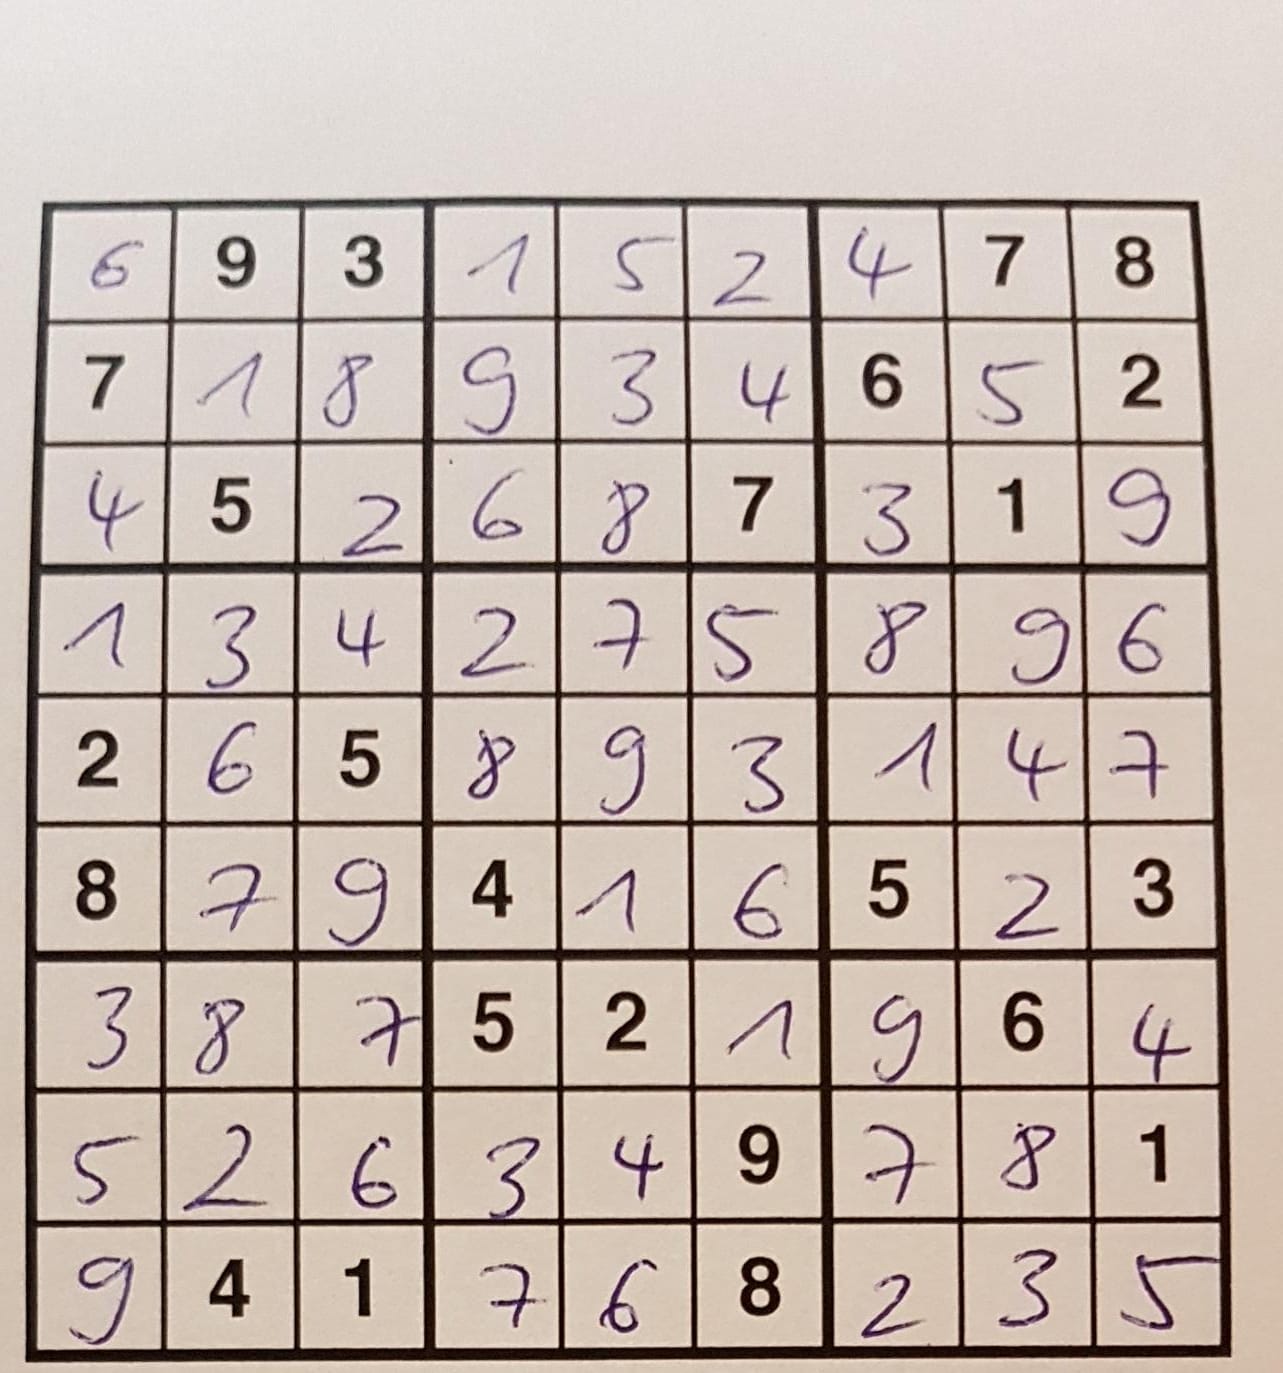 6 9 3 1 5 2 4 7 8
7 1 8 9 3 4 6 5 2
4 5 2 6 8 7 3 1 9
1 3 4 2 7 5 8 9 6
2 6 5 8 9 3 1 4 7
8 7 9 4 1 6 5 2 3
3 8 7 5 2 1 9 6 4
5 2 6 3 4 9 7 8 1
9 4 1 7 6 8 2 3 5